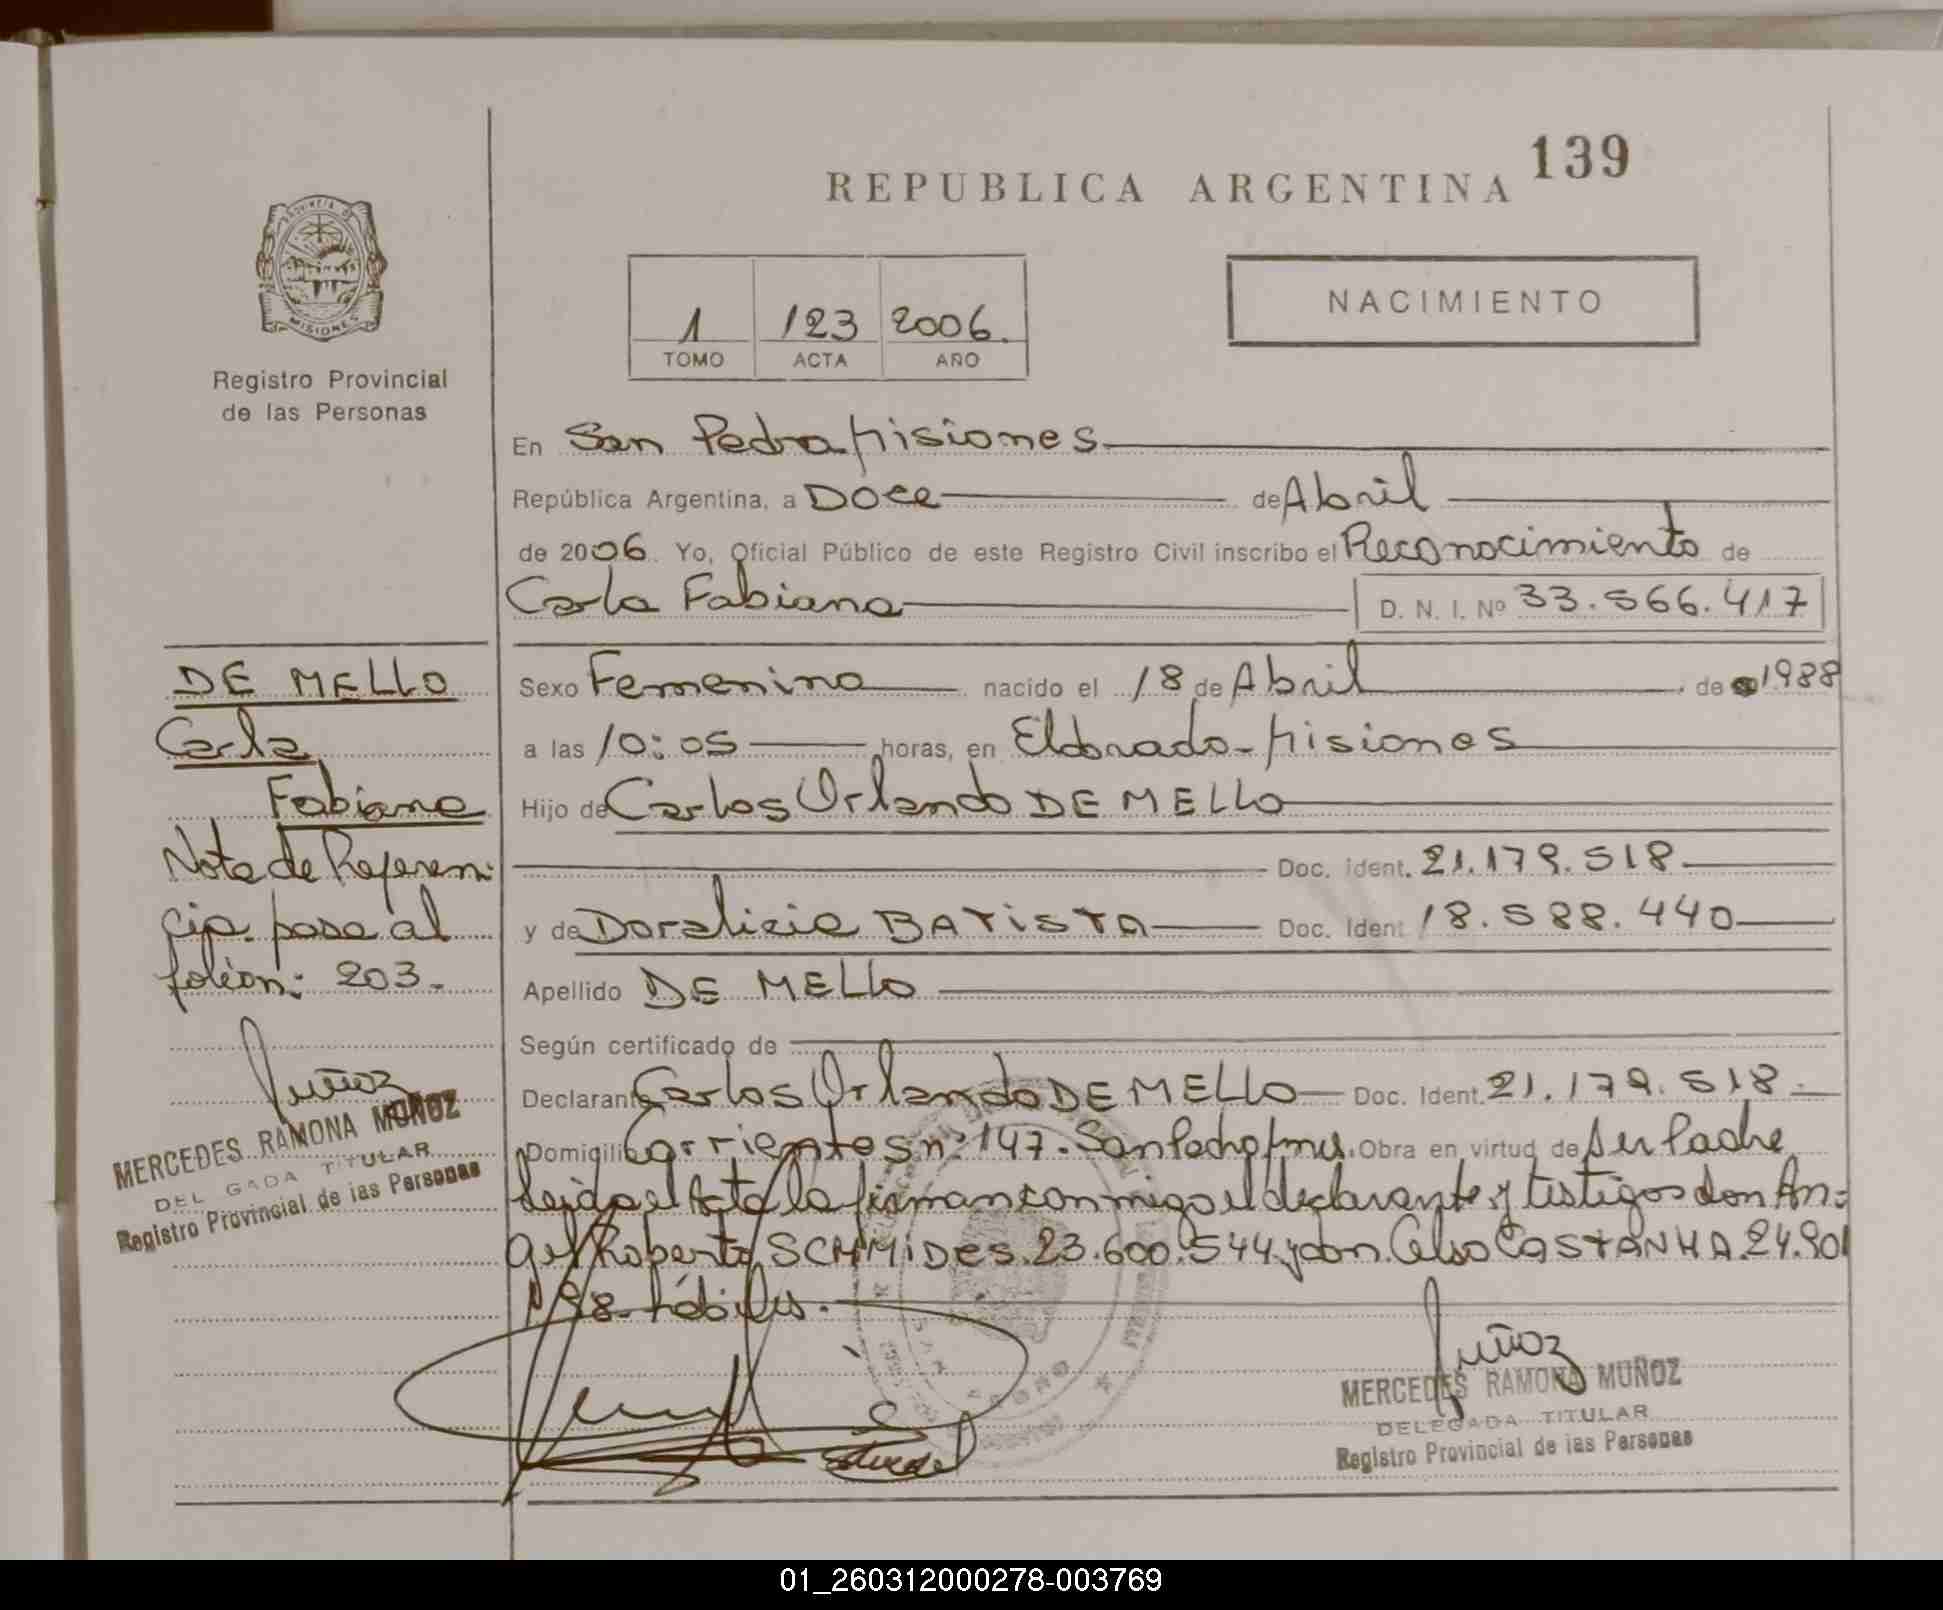 139
REPUBLICA ARGENTINA
PROVINCIA DE
MISIONES
Registro Provincial
de las Personas
NACIMIENTO
1 123 2006.
TOMO ACTA AÑO
En San Pedro Misiones
República Argentina, a Doce de Abril
de 2006. Yo, Oficial Público de este Registro Civil inscribo el Reconocimiento de
Carla Fabiana D. N. I. Nº 33.566.417
Sexo Femenino nacido el 18 de Abril de 1988
a las 10:05 horas, en Eldorado-Misiones
Hijo de Carlos Orlando DE MELLO
Doc. ident. 21.179.518
y de Doralicia BATISTA Doc. Ident 18.588.440
Apellido DE MELLO
Según certificado de
Declarante Carlos Orlando DE MELLO Doc. Ident. 21.179.518.
Domicilio Corrientes nº 147. San Pedro Mnes. Obra en virtud de ser Padre
Leida el Acta la firman conmigo el declarante y testigos don An-
gel Roberto SCHMIDES. 23.600.544 y don Celso CASTANHA 24.901
198 hábiles.
DE MELLO
Carla
Fabiana
Nota de Referen-
cia pasa al
folio n: 203.
Muñoz
MERCEDES RAMONA MUÑOZ
DELEGADA TITULAR
Registro Provincial de las Personas
Muñoz
MERCEDES RAMONA MUÑOZ
DELEGADA TITULAR
Registro Provincial de las Personas
01_260312000278-003769